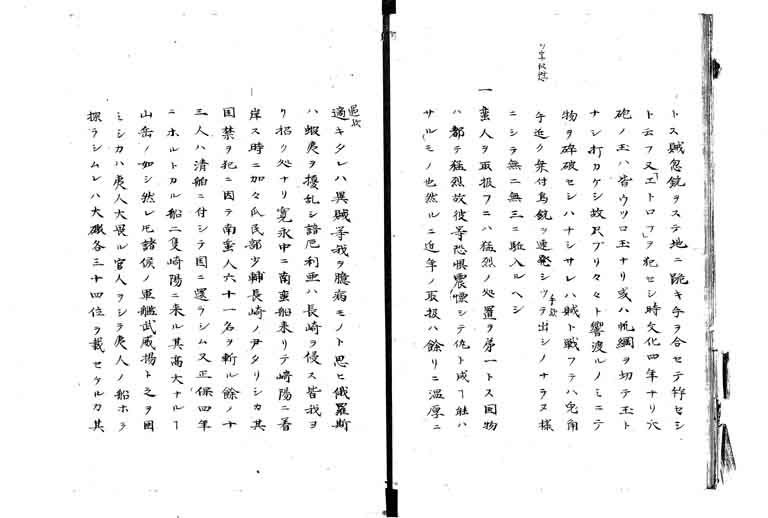 トス賊忽銃ヲステ地ニ跪キ手ヲ合セテ詐セシ
ト云フ又「エトロフ」ヲ犯セシ時文化四年ナリ穴
砲ノ玉ハ皆ウツロ玉ナリ或ハ帆綱ヲ切テ玉ト
ナシ打カケシ故只ブリ々々ト響渡ルノミニテ
物ヲ碎破セシハナシサレハ賊ト戦フテハ兎角
手近ク矢付鳥銃ヲ連発シツテ出シノナラヌ様
ニシテ無二無三ニ駈入ルヘシ
一 蛮人ヲ取扱フニハ猛烈ノ処置ヲ第一トス図物
ハ都テ猛烈故彼等恐惧震慄シテ仇ト成ー能ハ
サルモノ也然ルニ近年ノ取扱ハ餘リニ温厚ニ
過キタレハ異賊等我ヲ臆病モノト思ヒ俄羅斯
ハ蝦夷ヲ擾乱シ諳厄利亜ハ長崎ヲ侵ス皆我ヨ
リ招ク処ナリ寛永中ニ南蛮船来リテ崎陽ニ着
岸ス時ニ加々爪民部少輔長崎ノ尹タリシカ其
国禁ヲ犯ニ因テ南蛮人六十一名ヲ斬ル餘ノ十
三人ハ清舶ニ付シテ国ニ還ラシム又正保四年
ニホルトカル船二隻崎陽ニ来ル其高大ナルー
山岳ノ如シ然レ𪜈諸侯ノ軍艦武威揚ト之ヲ囲
ミシカハ夷人大畏ル官人ヲシテ夷人ノ船ホヲ
探ラシムレハ大砲各三十四位ヲ載セケルカ其